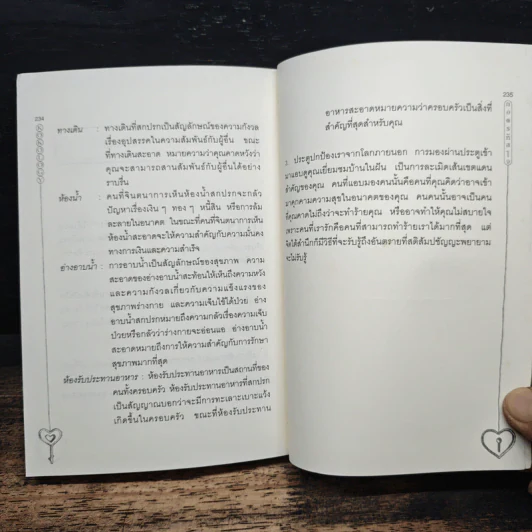 234
ทางเดิน : ทางเดินที่สกปรกเป็นสัญลักษณ์ของความกังวล
เรื่องอุปสรรคในความสัมพันธ์กับผู้อื่น ขณะ
ที่ทางเดินสะอาด หมายความว่าคุณคาดหวังว่า
คุณจะสามารถสานสัมพันธ์กับผู้อื่นได้อย่าง
ราบรื่น
ห้องน้ำ : คนที่จินตนาการเห็นห้องน้ำสกปรกจะกลัว
ปัญหาเรื่องเงิน ๆ ทอง ๆ หนี้สิน หรือการล้ม
ละลายในอนาคต ในขณะที่คนที่จินตนาการเห็น
ห้องน้ำสะอาดจะให้ความสำคัญกับความมั่นคง
ทางการเงินและความสำเร็จ
อ่างอาบน้ำ : การอาบน้ำเป็นสัญลักษณ์ของสุขภาพ ความ
สะอาดของอ่างอาบน้ำสะท้อนให้เห็นถึงความหวัง
และความกังวลเกี่ยวกับความแข็งแรงของ
สุขภาพร่างกาย และความเจ็บไข้ได้ป่วย อ่าง
อาบน้ำสกปรกหมายถึงความกลัวเรื่องความเจ็บ
ป่วยหรือกลัวว่าร่างกายจะอ่อนแอ อ่างอาบน้ำ
สะอาดหมายถึงการให้ความสำคัญกับการรักษา
สุขภาพมากที่สุด
ห้องรับประทานอาหาร : ห้องรับประทานอาหารเป็นสถานที่ของ
คนทั้งครอบครัว ห้องรับประทานอาหารที่สกปรก
เป็นสัญญาณบอกว่าจะมีการทะเลาะเบาะแว้ง
เกิดขึ้นในครอบครัว ขณะที่ห้องรับประทาน
235
อาหารสะอาดหมายความว่าครอบครัวเป็นสิ่งที่
สำคัญที่สุดสำหรับคุณ
ประตูปกป้องเราจากโลกภายนอก การมองผ่านประตูเข้า
มาแอบดูคุณเยี่ยมชมบ้านในฝัน เป็นการละเมิดเส้นเขตแดน
สำคัญของคุณ คนที่แอบมองคนนั้นคือคนที่คุณคิดว่าอาจเข้า
มาคุกคามความสุขในอนาคตของคุณ คนคนนั้นอาจเป็นคน
ที่คุณคาดไม่ถึงว่าจะทำร้ายคุณ หรืออาจทำให้คุณไม่สบายใจ
เพราะคนที่เรารักคือคนที่สามารถทำร้ายเราได้มากที่สุด แต่
จิตใต้สำนึกก็มีวิธีที่จะรับรู้ถึงอันตรายที่สติสัมปชัญญะพยายาม
จะไม่รับรู้